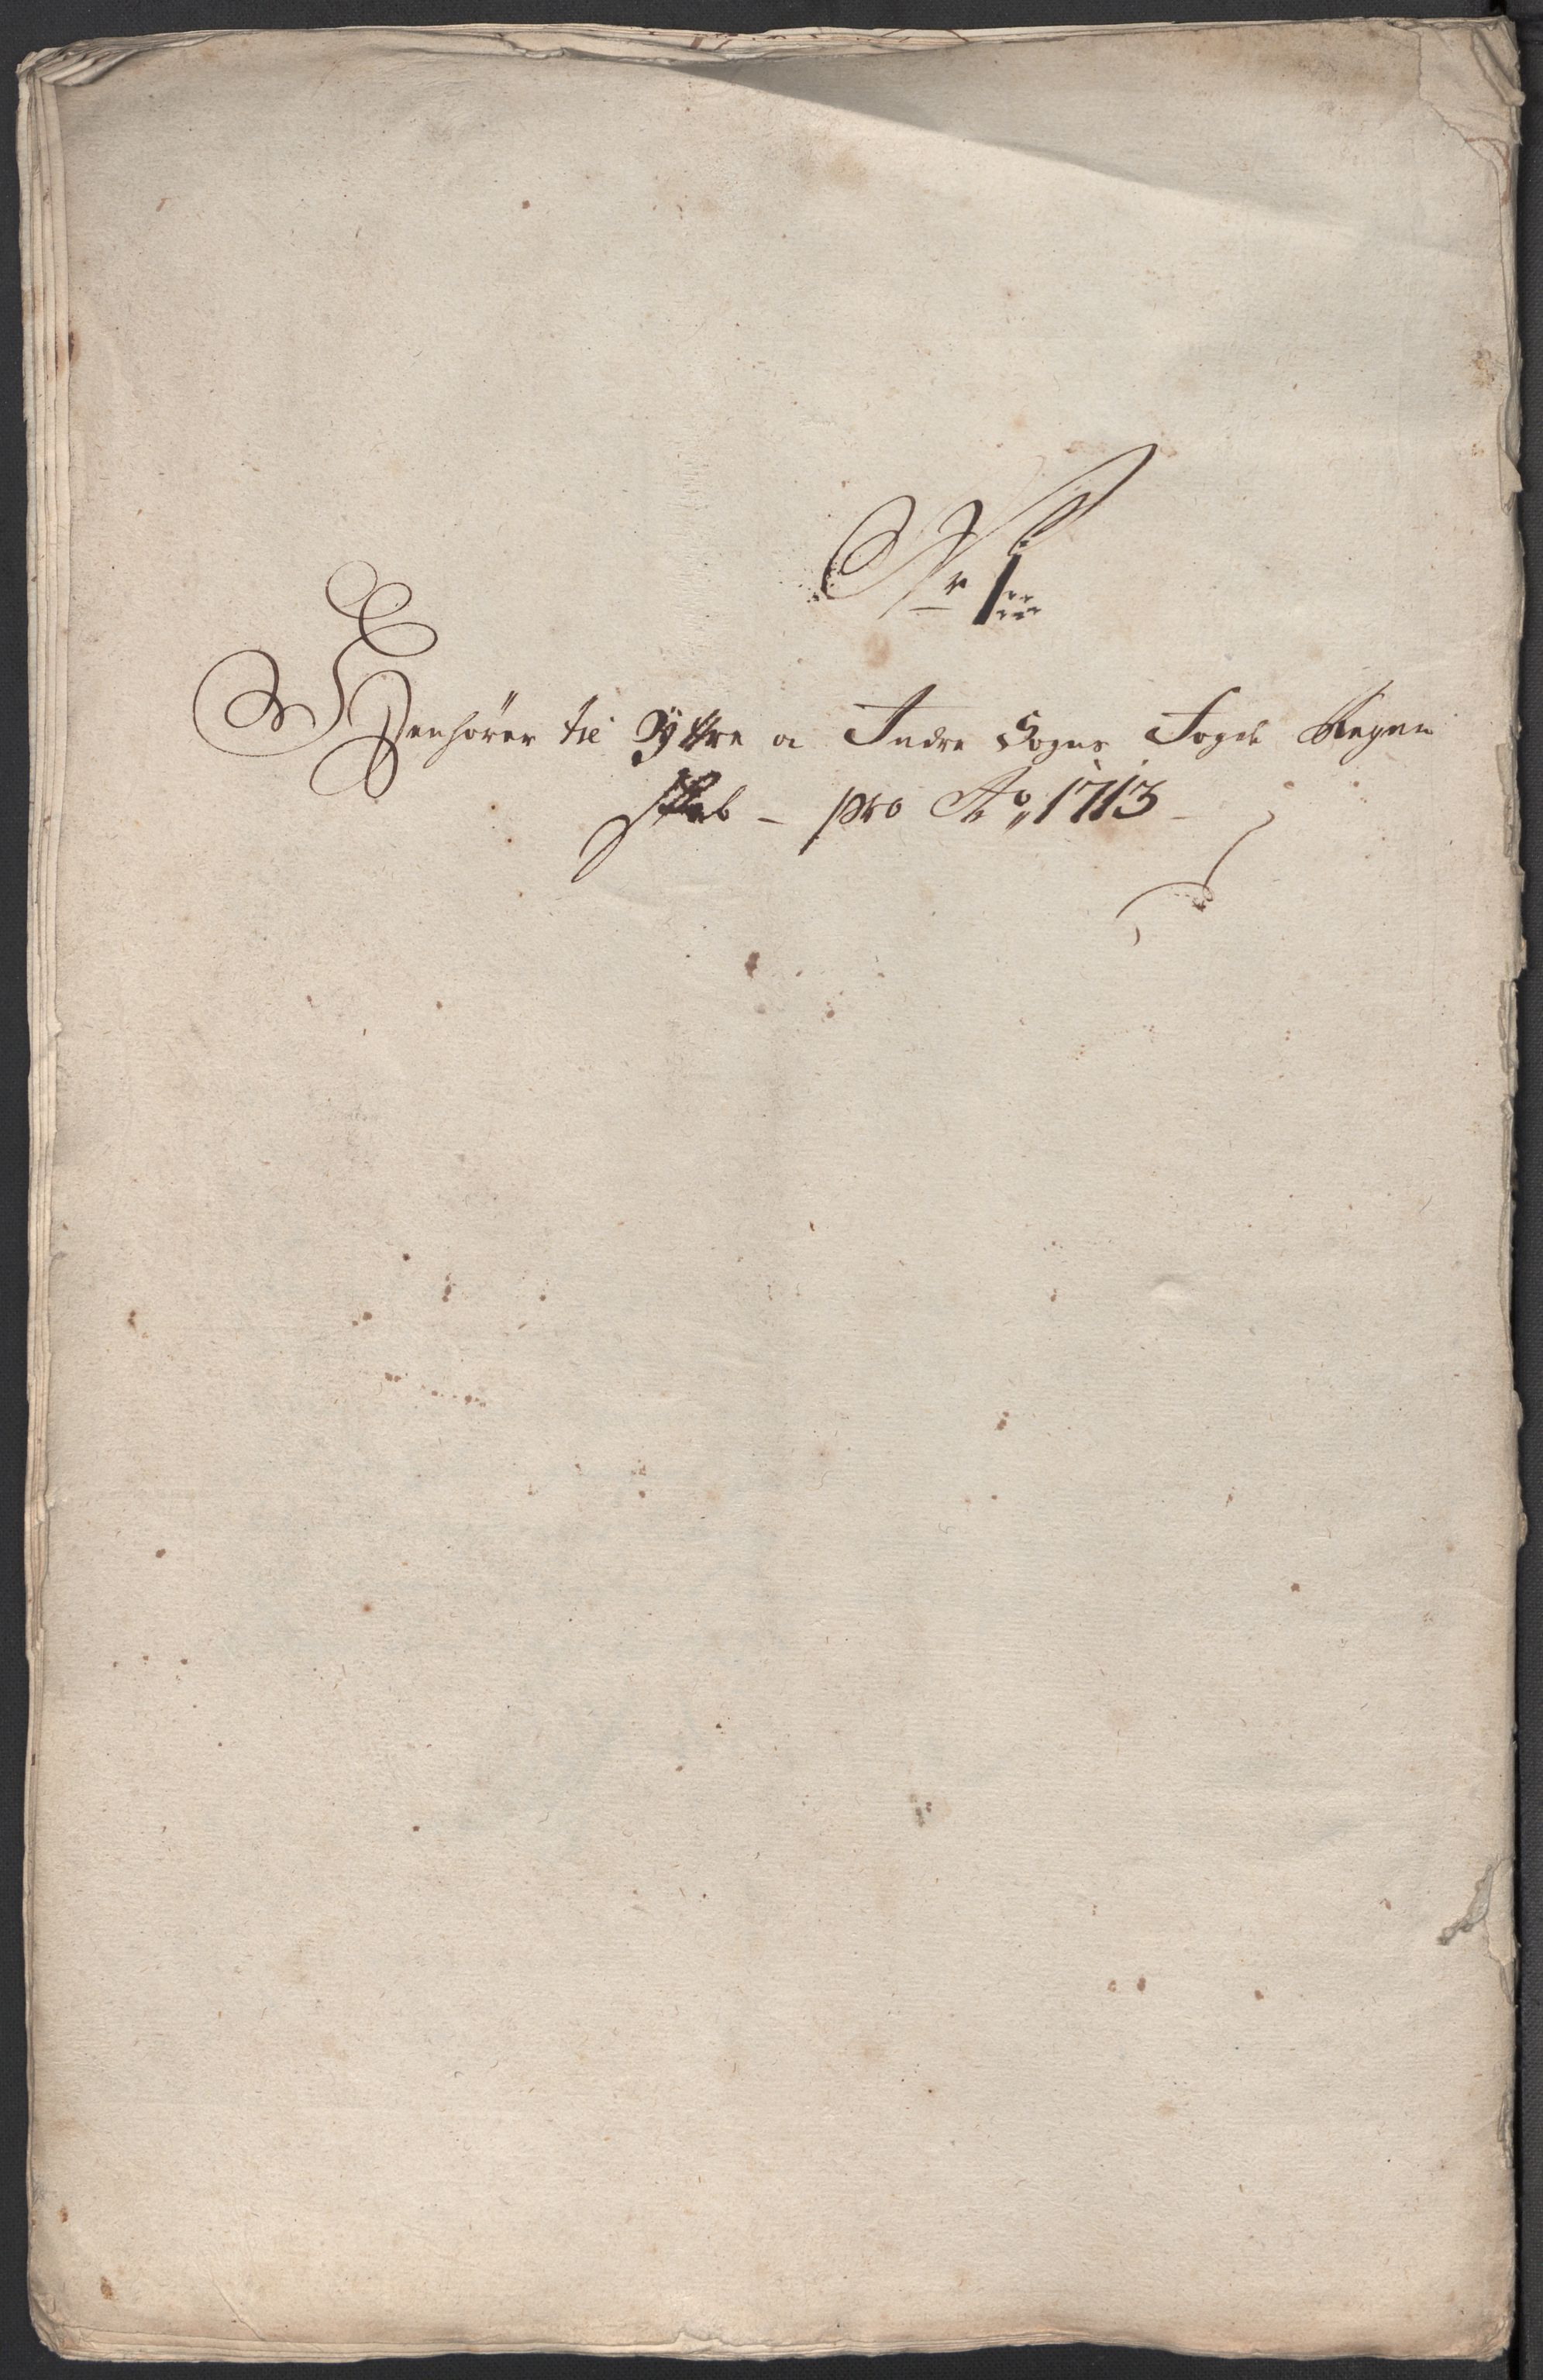 Nr 1
Henhører til Yttre o Indre Sogns Fogd Regen
skab – pro Ao 1713